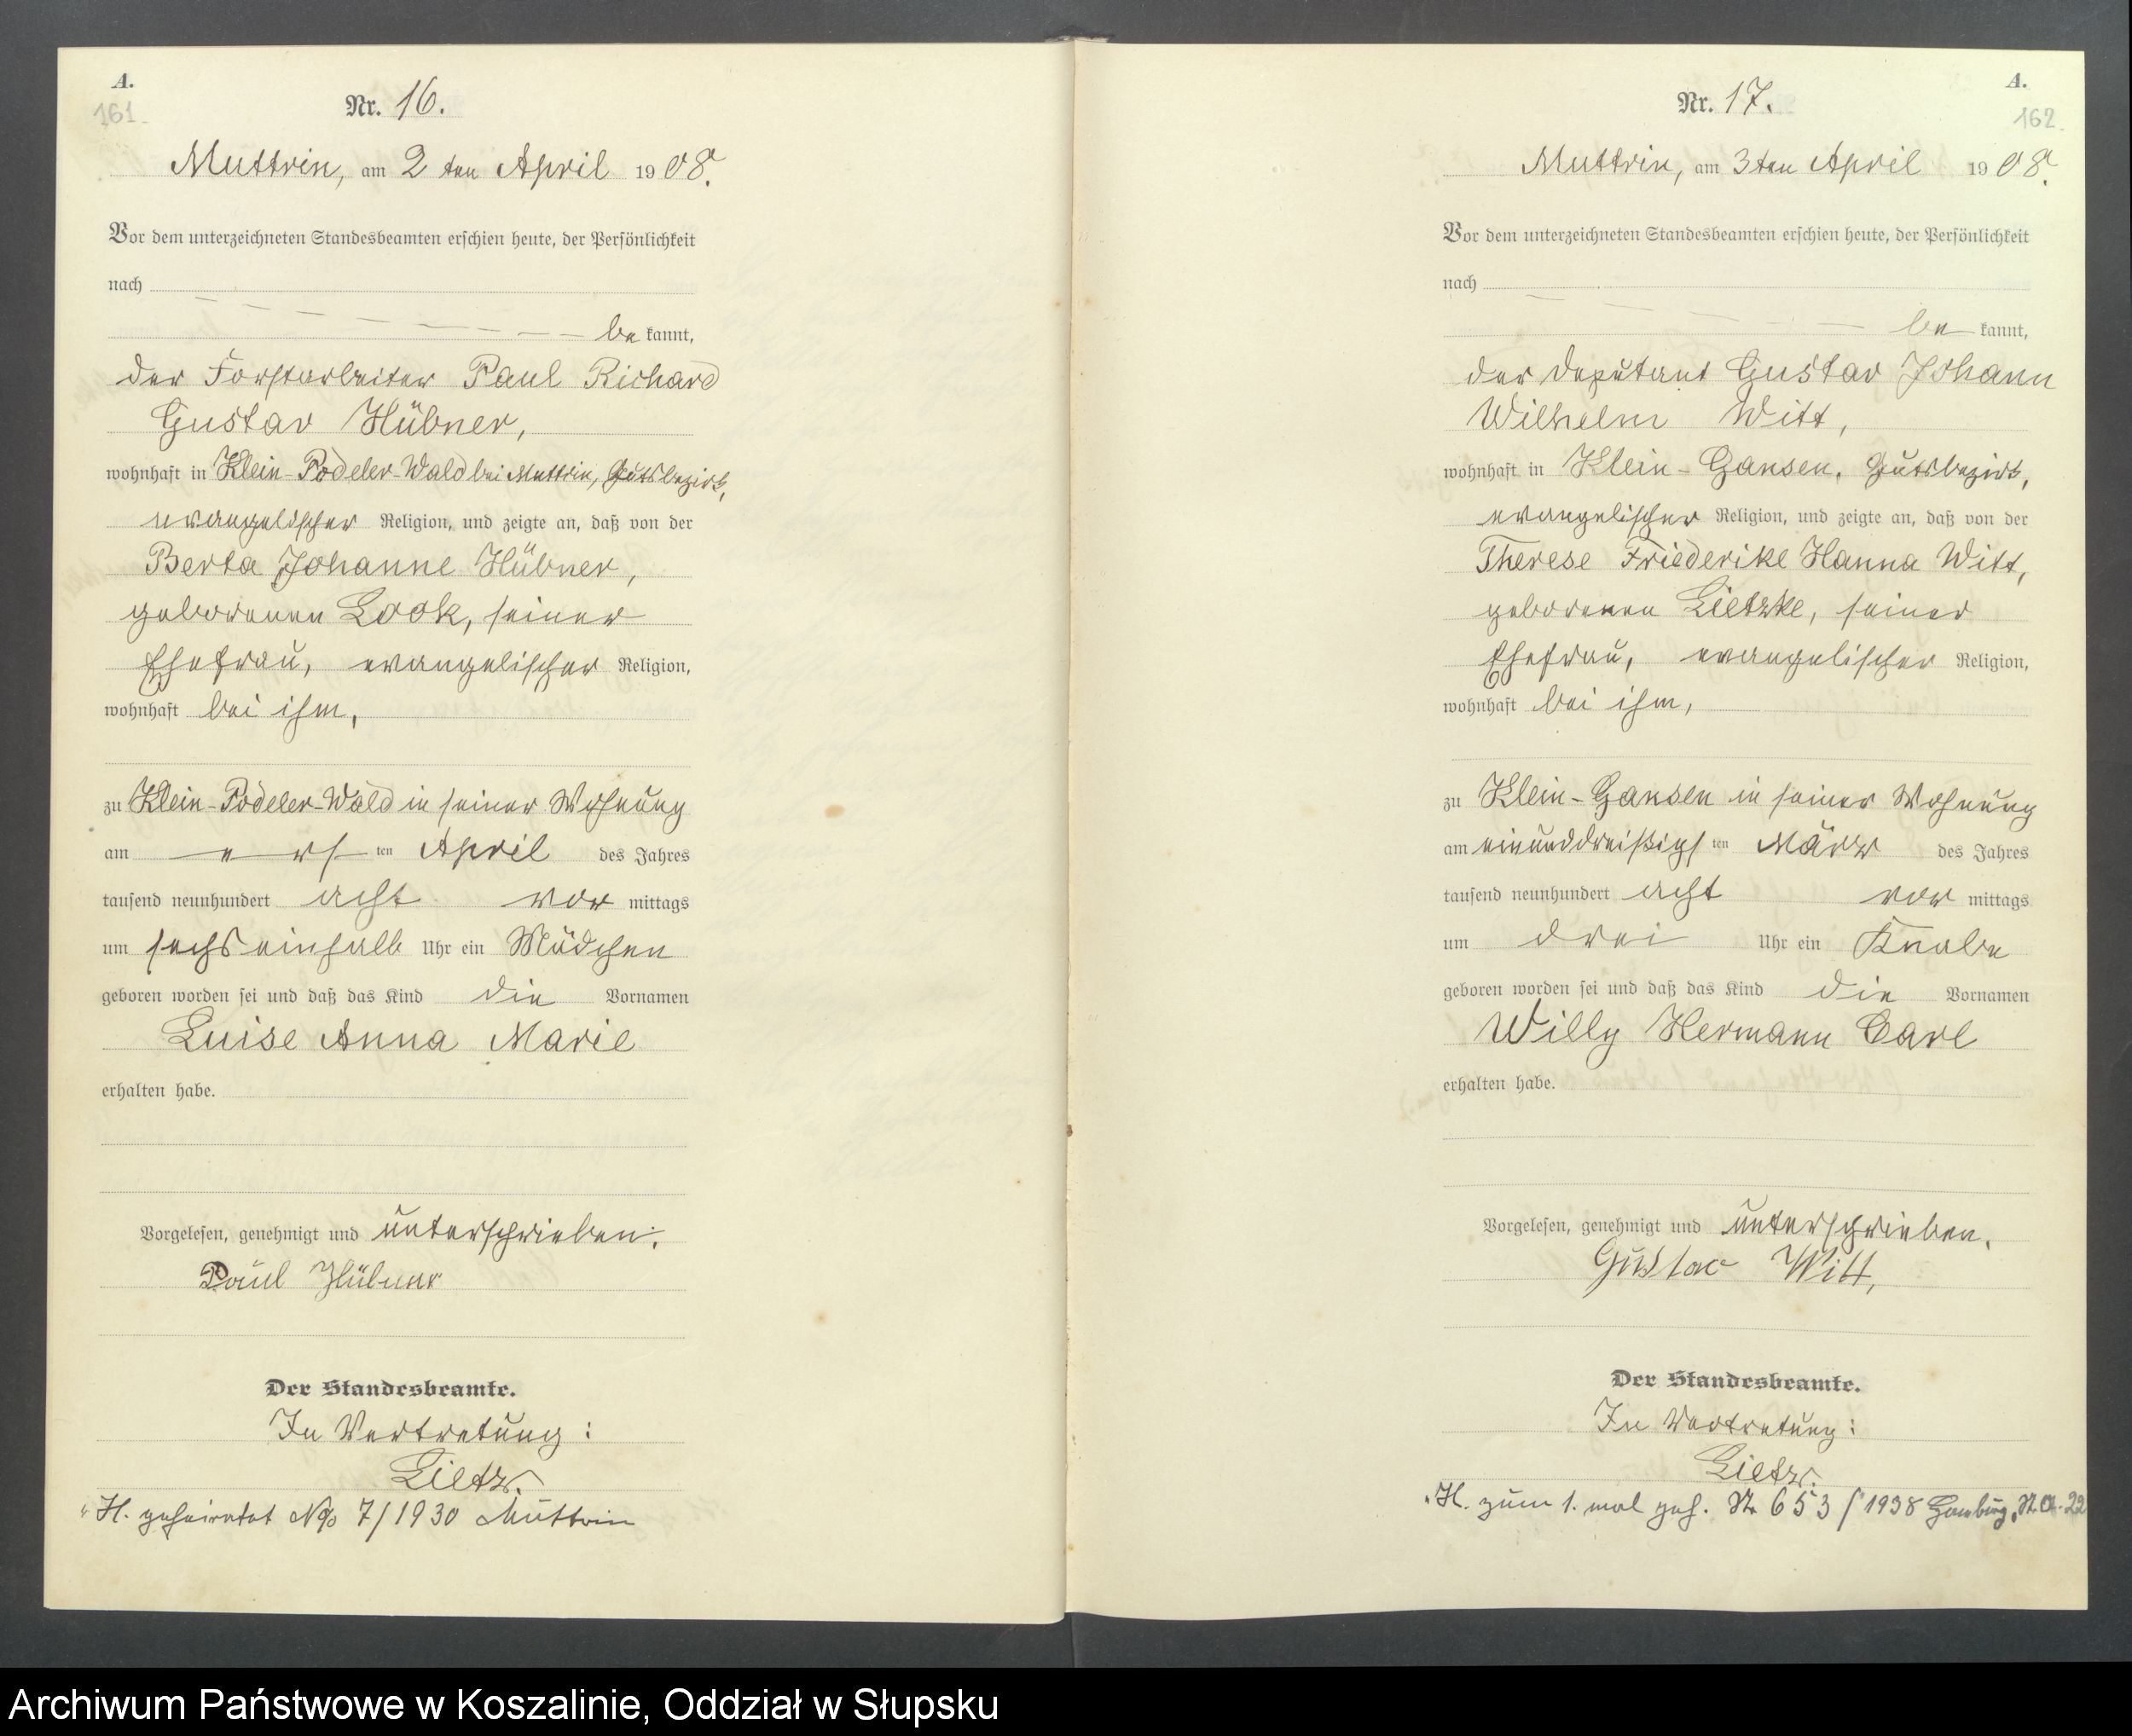 A.
161.
Nr. 16.
Muttrin, am 2 ten April 1908.
Vor dem unterzeichneten Standesbeamten erschien heute, der Persönlichkeit
nach
be kannt,
der Forstarbeiter Paul Richard
Gustav Hübner,
wohnhaft in Klein-Podeler-Wald bei Muttrin, Gutsbezirk,
evangelischer Religion, und zeigte an, daß von der
Berta Johanne Hübner,
geborenen Look, seiner
Ehefrau, evangelischer Religion,
wohnhaft bei ihm,
zu Klein-Podeler-Wald in seiner Wohnung
am erst ten April des Jahres
tausend neunhundert acht vor mittags
um sechseinhalb Uhr ein Mädchen
geboren worden sei und daß das Kind die Vornamen
Luise Anna Marie
erhalten habe.
Vorgelesen, genehmigt und unterschrieben.
Paul Hübner
Der Standesbeamte.
In Vertretung:
Lietz.
H. geheiratet No 7/1930 Muttrin
A.
162.
Nr. 17.
Muttrin, am 3ten April 1908.
Vor dem unterzeichneten Standesbeamten erschien heute, der Persönlichkeit
nach
be kannt,
der Deputant Gustav Johann
Wilhelm Witt,
wohnhaft in Klein-Gansen, Gutsbezirk,
evangelischer Religion, und zeigte an, daß von der
Therese Friederike Hanna Witt,
geborenen Lietzke, seiner
Ehefrau, evangelischer Religion,
wohnhaft bei ihm,
zu Klein-Gansen in seiner Wohnung
am einunddreißigst ten März des Jahres
tausend neunhundert acht vor mittags
um drei Uhr ein Knabe
geboren worden sei und daß das Kind die Vornamen
Willy Hermann Carl
erhalten habe.
Vorgelesen, genehmigt und unterschrieben.
Gustav Witt,
Der Standesbeamte.
In Vertretung:
Lietz.
H. zum 1. mal geh. Nr 653/1938 Hamburg, St. A. 22
Archiwum Państwowe w Koszalinie, Oddział w Słupsku